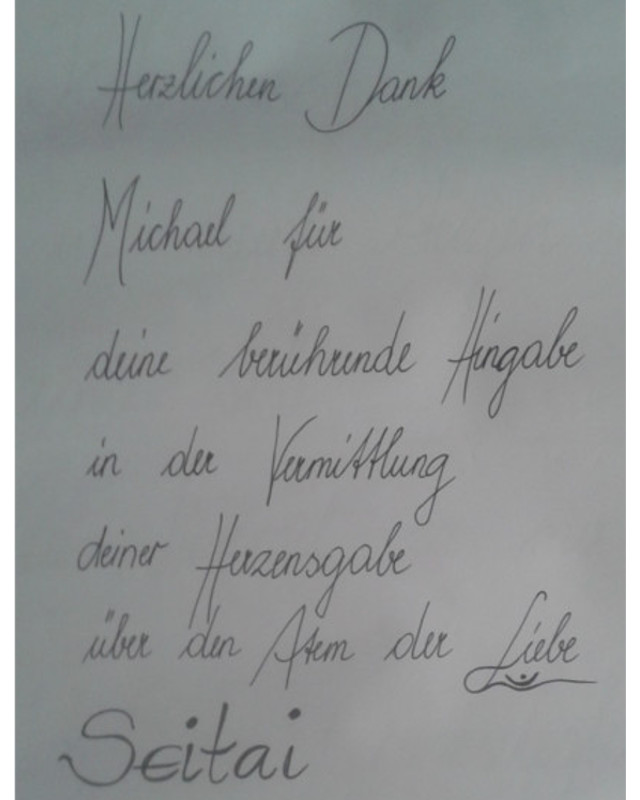 Herzlichen Dank
Michael für
deine berührende Hingabe
in der Vermittlung
deiner Herzensgabe
über den Atem der Liebe
Seitai